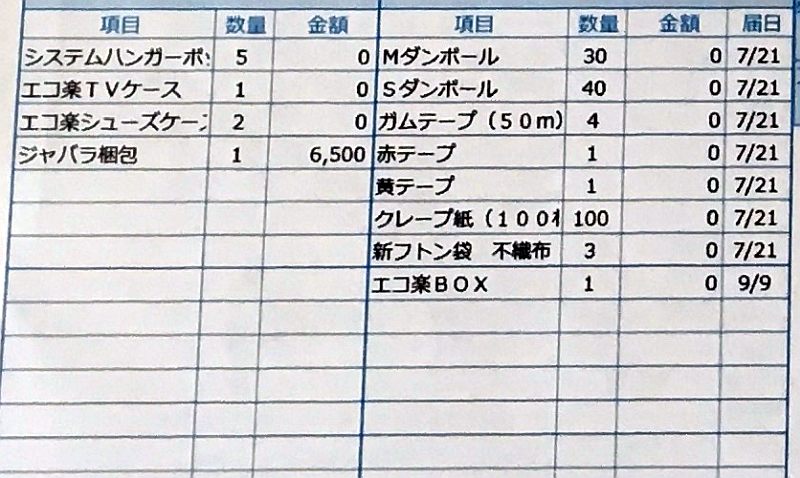 項目 数量 金額 項目 数量 金額 届日
システムハンガーボ 5 0 Мダンボール 30 0 7/21
エコ楽ＴＶケース 1 0 Ｓダンボール 40 0 7/21
エコ楽シューズケー 2 0 ガムテープ（５０ｍ） 4 0 7/21
ジャバラ梱包 1 6,500 赤テープ 1 0 7/21
黄テープ 1 0 7/21
クレープ紙（１００ 100 0 7/21
新フトン袋　不織布 3 0 7/21
エコ楽ＢＯＸ 1 0 9/9